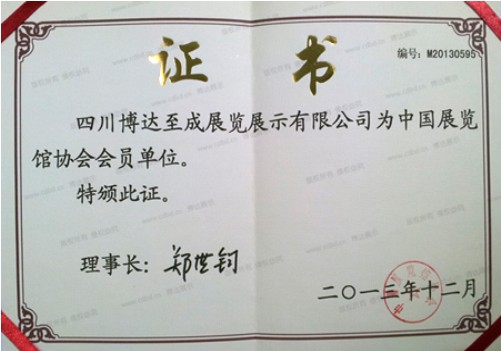 证书
编号：M20130595
四川博达至成展览展示有限公司为中国展览
馆协会会员单位。
特颁此证。
理事长：郑世钧
二〇一三年十二月